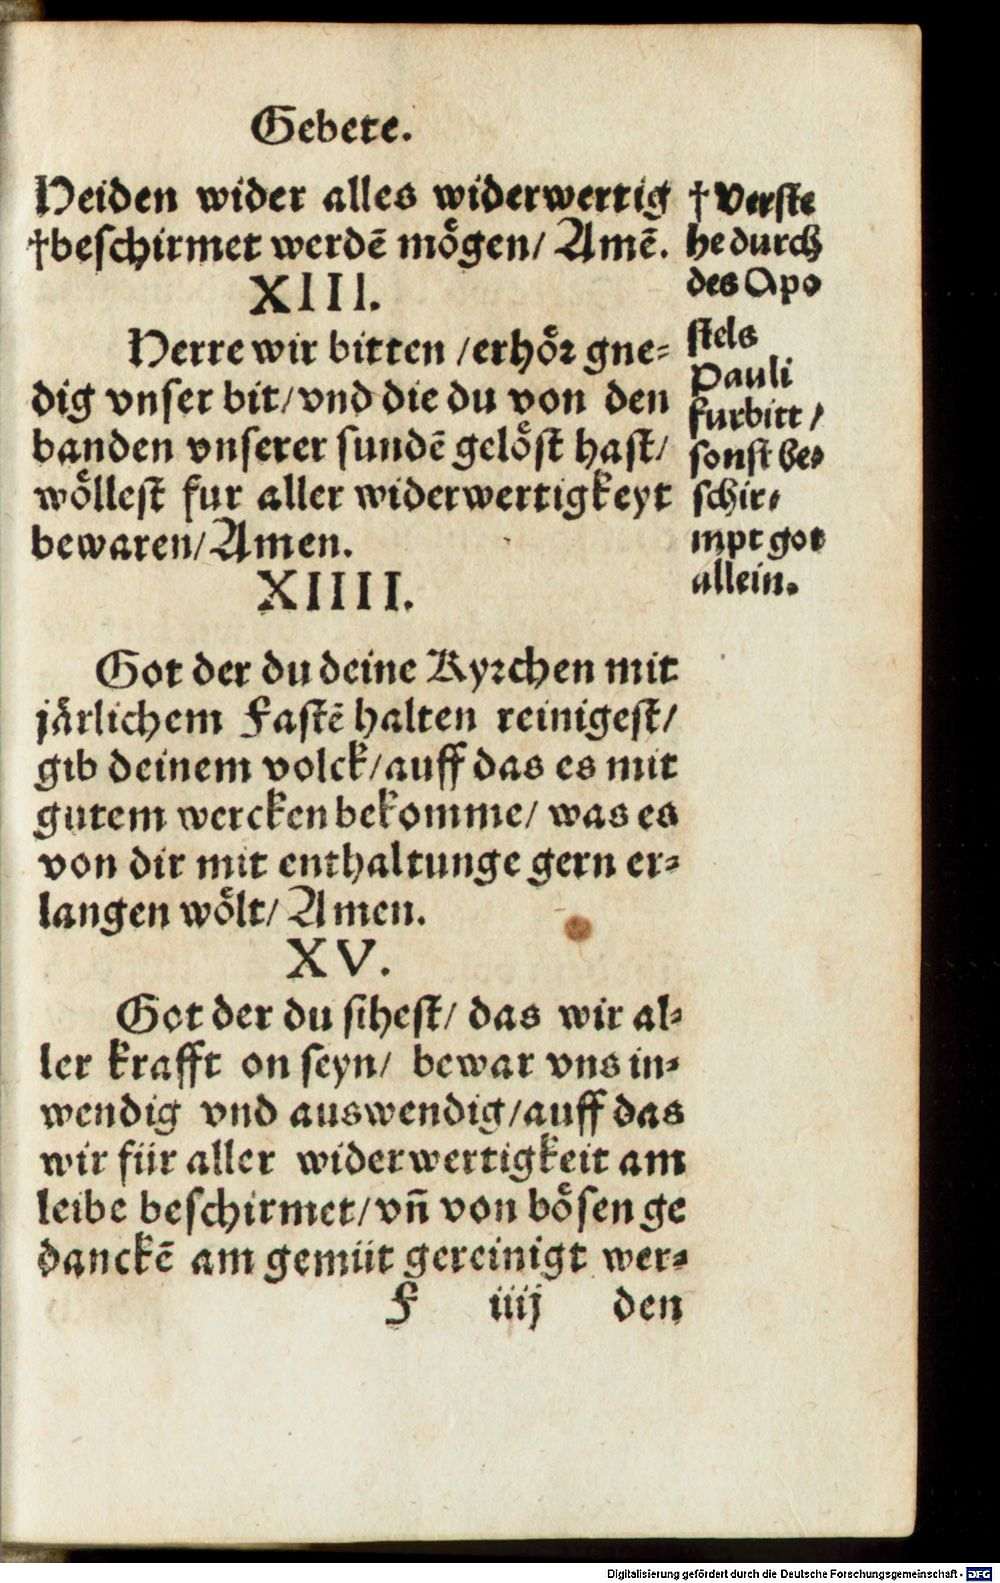 Gebete.
Heiden wider alles widerwertig
†beschirmet werdē mögen/ Amē.
XIII.
Herre wir bitten /erhör gne⸗
dig vnser bit/vnd die du von den
banden vnserer sundē gelöst hast/
wöllest fur aller widerwertigkeyt
bewaren/Amen.
XIIII.
Got der du deine Kyrchen mit
järlichem Fastē halten reinigest/
gib deinem volck/auff das es mit
gutem wercken bekomme/ was es
von dir mit enthaltunge gern er⸗
langen wölt/ Amen.
XV.
Got der du sihest/ das wir al⸗
ler krafft on seyn/ bewar vns in⸗
wendig vnd auswendig/auff das
wir für aller widerwertigkeit am
leibe beschirmet/vn̄ von bösen ge
danckē am gemüt gereinigt wer⸗
F iiij den
† Verste
he durch
des Apo
stels
Pauli
furbitt/
sonst be⸗
schir⸗
mpt got
allein.
Digitalisierung gefördert durch die Deutsche Forschungsgemeinschaft - DFG